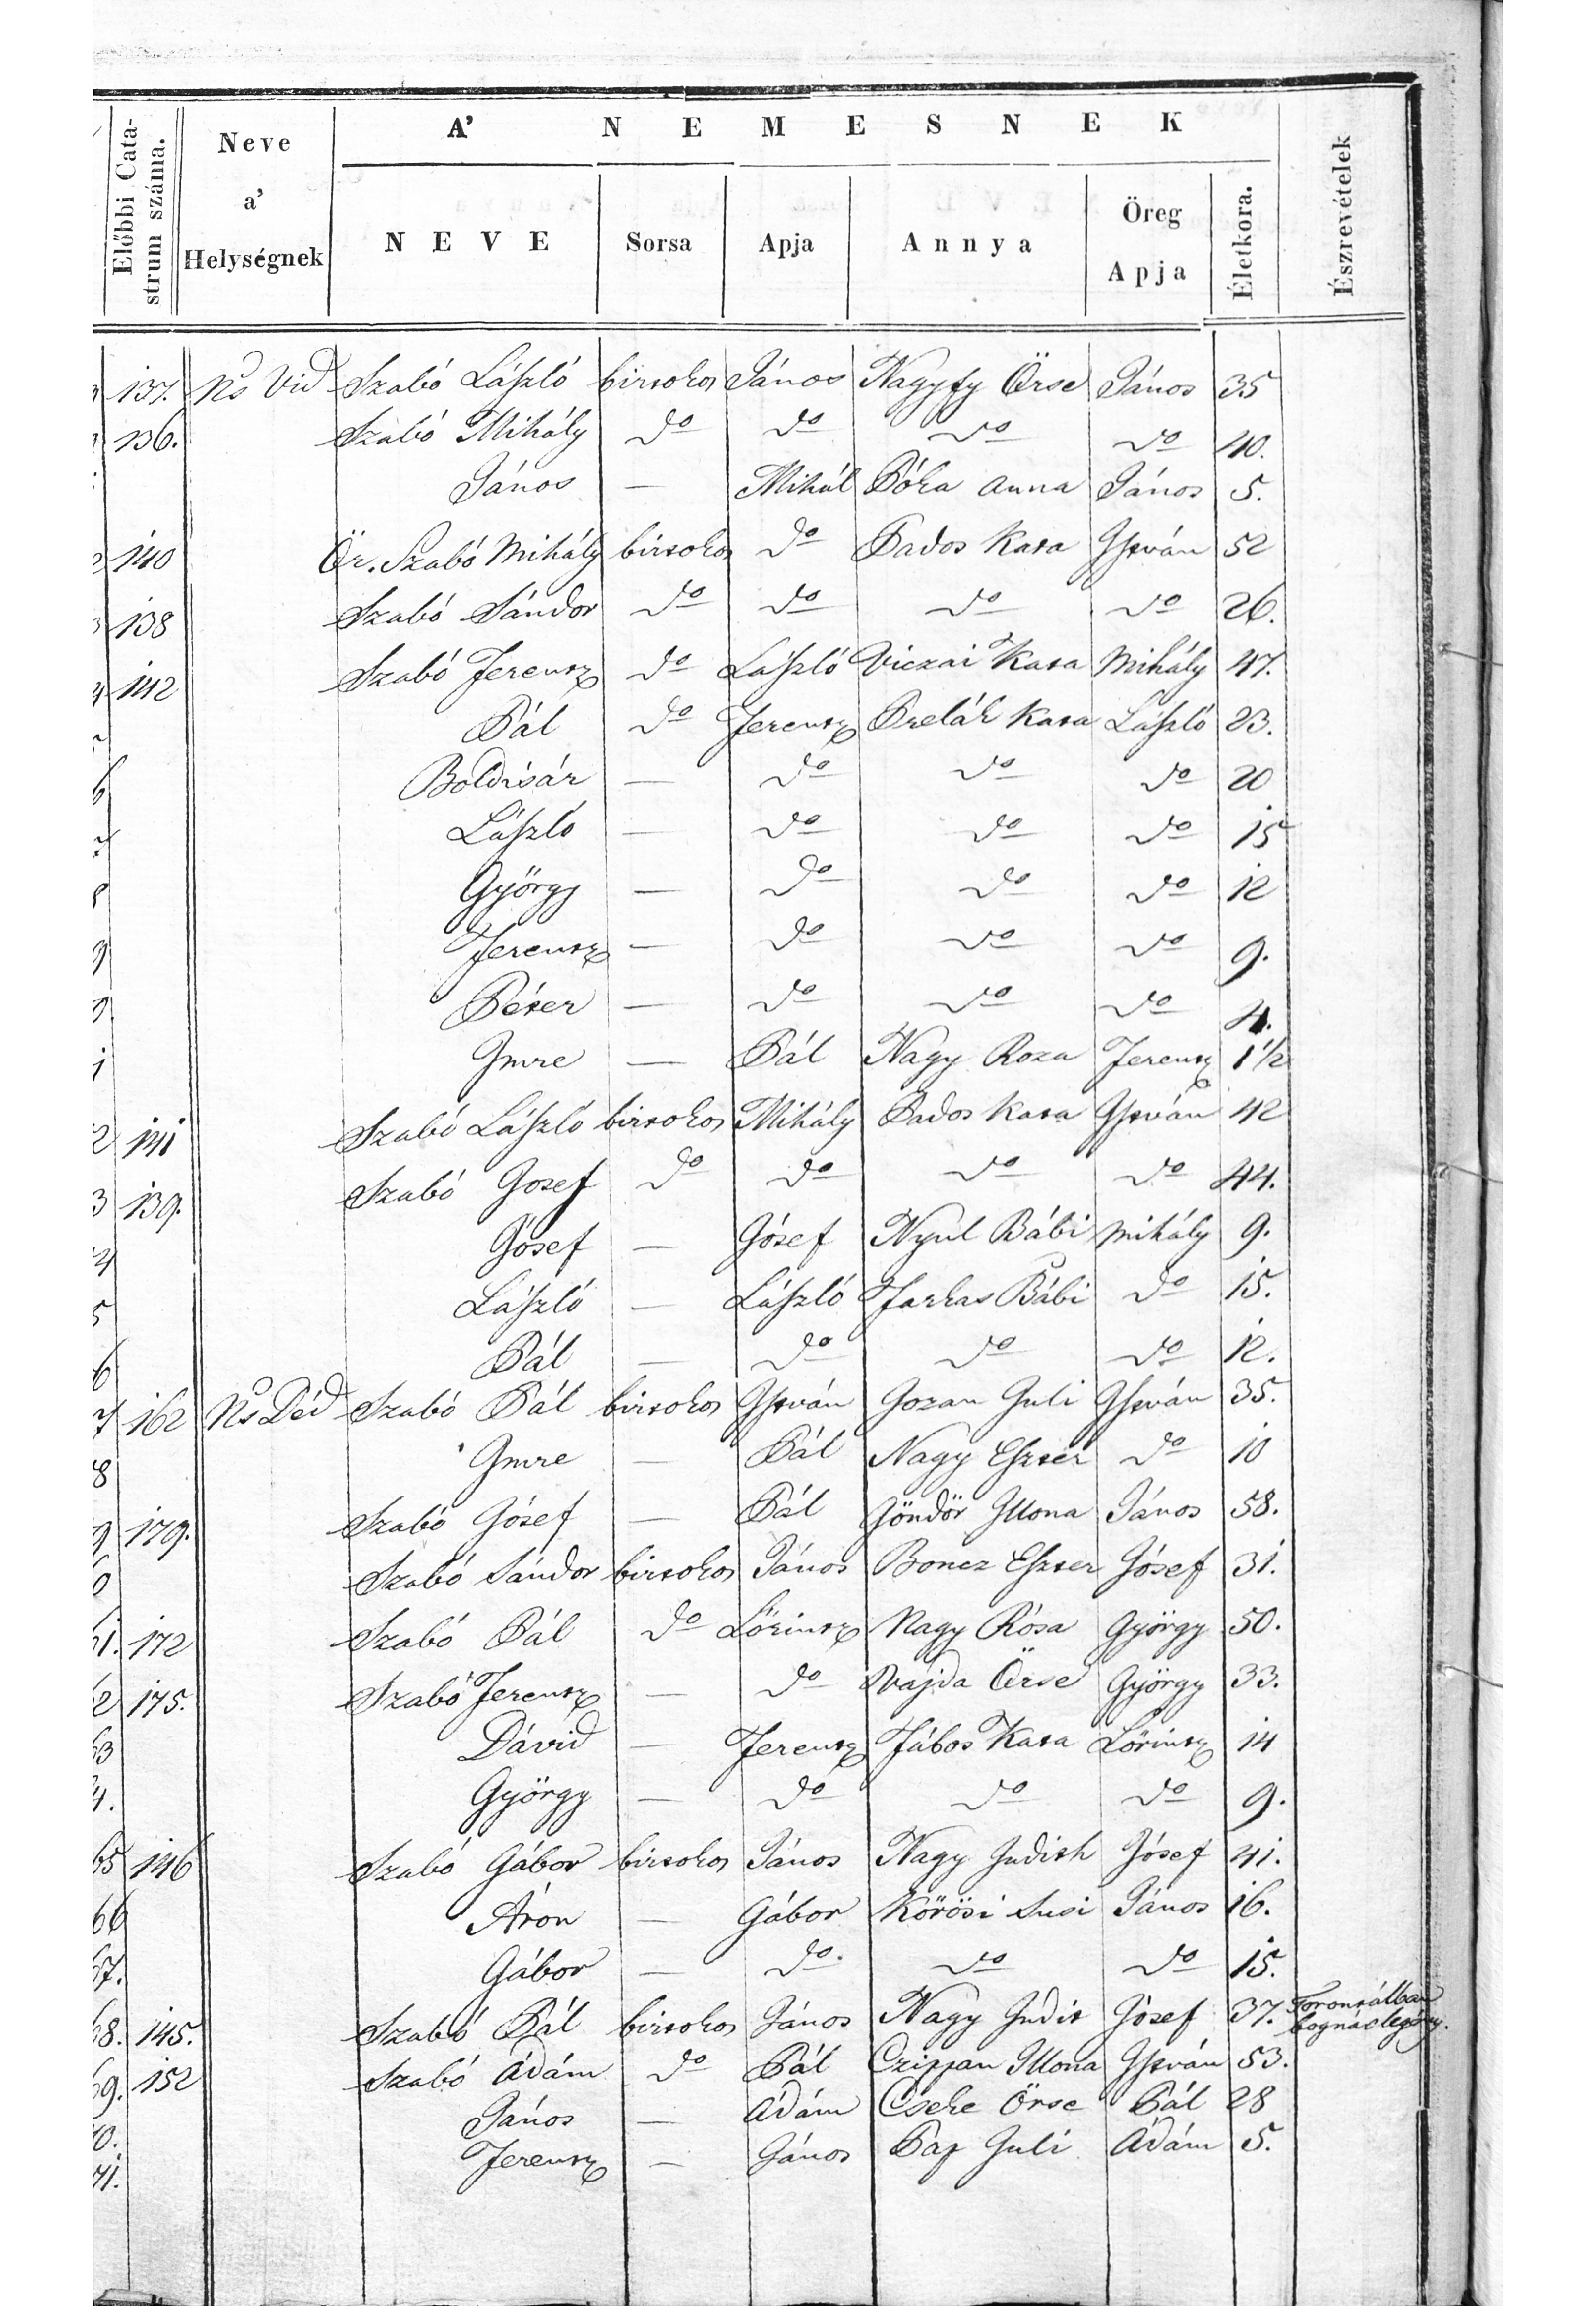 A' NEMESNEK
Előbbi Cata-
strum száma.
Neve
a'
Helységnek
NEVE
Sorsa
Apja
Annya
Öreg
Apja
Életkora.
Észrevételek
137. Ns Vid Szabó László birtokos János Nagyfy Örse János 35
136. Szabó Mihály do do do do 40.
János — Mihál Póka Anna János 5.
140 Ör. Szabó Mihály birtokos do Bados Kata István 52
138 Szabó Sándor do do do do 26.
142 Szabó Ferentz do László Viczai Kata Mihály 47.
Pál do Ferentz Prelák Kata László 23.
Boldisár — do do do 20
László — do do do 15
György — do do do 12
Ferentz — do do do 9.
Péter — do do do 4.
Imre — Pál Nagy Roza Ferentz 1 1/2
141 Szabó László birtokos Mihály Bados Kata István 42
139. Szabó Josef do do do do 44.
Jósef — Jósef Nyul Bábi Mihály 9.
László — László Farkas Bábi do 15.
Pál — do do do 12.
162 Ns Déd Szabó Pál birtokos István Gozan Juli István 35.
Imre — Pál Nagy Eszter do 10
179. Szabó Jósef — Pál Göndör Illona János 58.
Szabó Sándor birtokos János Boncz Eszter Jósef 31.
172 Szabó Pál do Lőrintz Nagy Rósa György 50.
175. Szabó Ferentz — do Vajda Örse György 33.
Dávid — Ferentz Fábos Kata Lőrintz 14
György — do do do 9.
65 146 Szabó Gábor birtokos János Nagy Judith Jósef 41.
66 Áron — Gábor Körösi Susi János 16.
67. Gábor — do. do do 15.
68. 145. Szabó Pál birtokos János Nagy Judit Jósef 37. Torontálban
bognárlegény.
69. 152 Szabó Ádám do Pál Czippan Illona István 53.
János — Ádám Cseke Örse Pál 28
Ferentz — János Pap Juli Ádám 5.